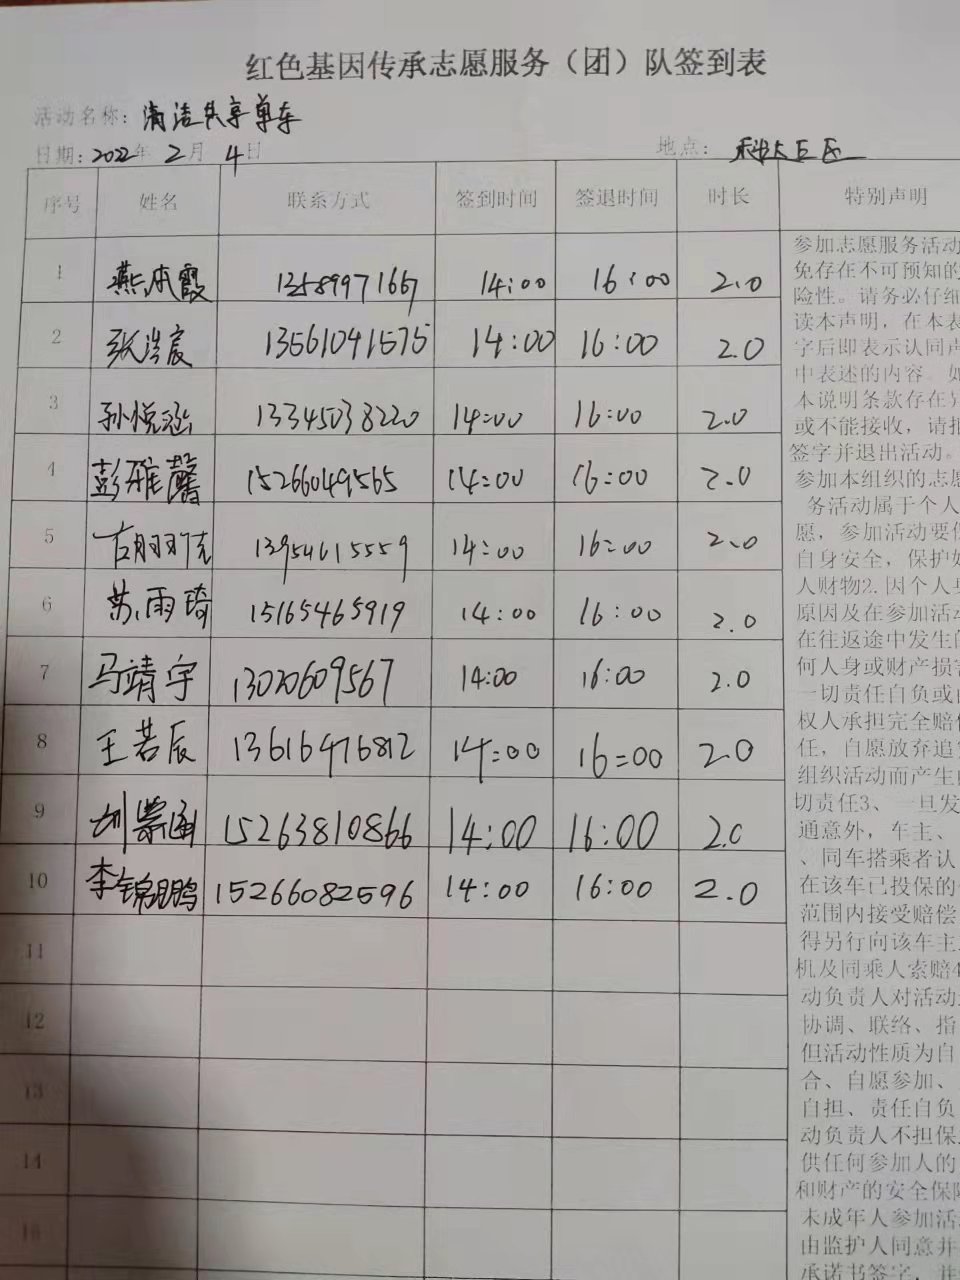 红色基因传承志愿服务（团）队签到表
活动名称：清洁共享单车
日期：2022年 2月 4日 地点：
序号 姓名 联系方式 签到时间 签退时间 时长 特别声明
1 燕 霞 13589971667 14:00 16:00 2.0
2 张浩宸 13561041575 14:00 16:00 2.0
3 孙悦涵 13345038220 14:00 16:00 2.0
4 彭雅馨 15266049565 14:00 16:00 2.0
5 13954615559 14:00 16:00 2.0
6 苏雨琦 15165465919 14:00 16:00 2.0
7 马靖宇 13020609567 14:00 16:00 2.0
8 王若辰 13616476812 14:00 16:00 2.0
9 刘 涵 15263810866 14:00 16:00 2.0
10 李锦鹏 15266082596 14:00 16:00 2.0
11
12
13
14
15
参加志愿服务活动
免存在不可预知的
险性。请务必仔细
读本声明，在本表
字后即表示认同声
中表述的内容。如
本说明条款存在异
或不能接收，请拒
签字并退出活动。
参加本组织的志愿
务活动属于个人
愿，参加活动要保
自身安全，保护好
人财物2.因个人身
原因及在参加活动
在往返途中发生的
何人身或财产损害
一切责任自负或由
权人承担完全赔偿
任，自愿放弃追究
组织活动而产生的
切责任3、一旦发
通意外，车主、
、同车搭乘者认
在该车已投保的保
范围内接受赔偿
得另行向该车主
机及同乘人索赔4
动负责人对活动进
协调、联络、指
但活动性质为自
合、自愿参加、
自担、责任自负
动负责人不担保
供任何参加人的
和财产的安全保障
未成年人参加活动
由监护人同意并
承诺书签字，并